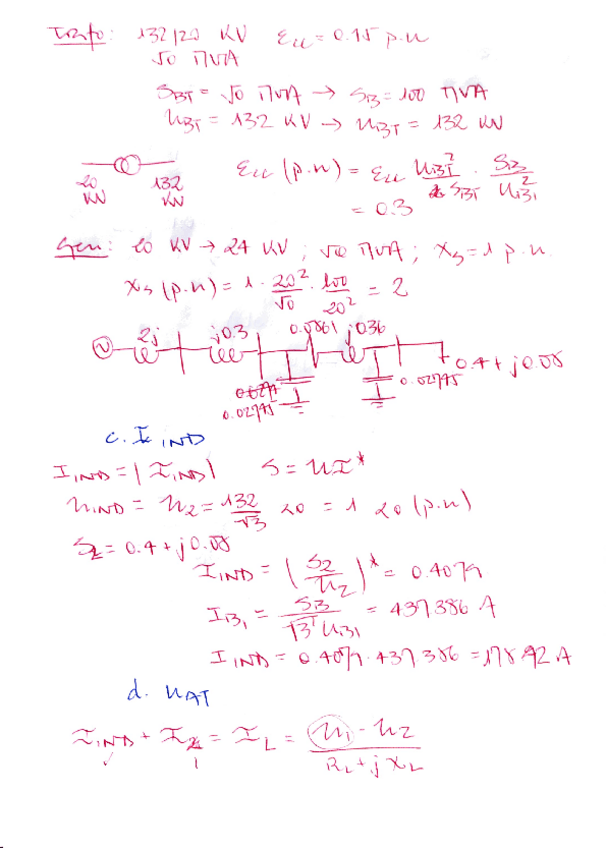 Trafo: 132/20 KV Ecc = 0.15 p.u
50 MVA
SBT = 50 MVA → SB = 100 MVA
UBT = 132 KV → UBT = 132 KV
20 KV 132 KV
Ecc (p.u) = Ecc UBT² / SBT · SB / UB1²
= 0.3
Gen: 20 KV → 24 KV ; 50 MVA ; Xs = 1 p.u.
Xs (p.u) = 1 · 20²/50 · 100/20² = 2
2j j0.3 0.0861 j036
0.4 + j0.08
0.02745
0.02745
c. I IND
IIND = |IIND| S = UI*
UIND = U2 = 132/√3 ∠0 = 1 ∠0 (p.u)
S2 = 0.4 + j0.08
IIND = (S2/U2)* = 0.4079
IB1 = SB/√3 UB1 = 437386 A
IIND = 0.4079 · 437386 = 178.42 A
d. UAT
IIND + I = IL = U1 - U2 / RL + j XL